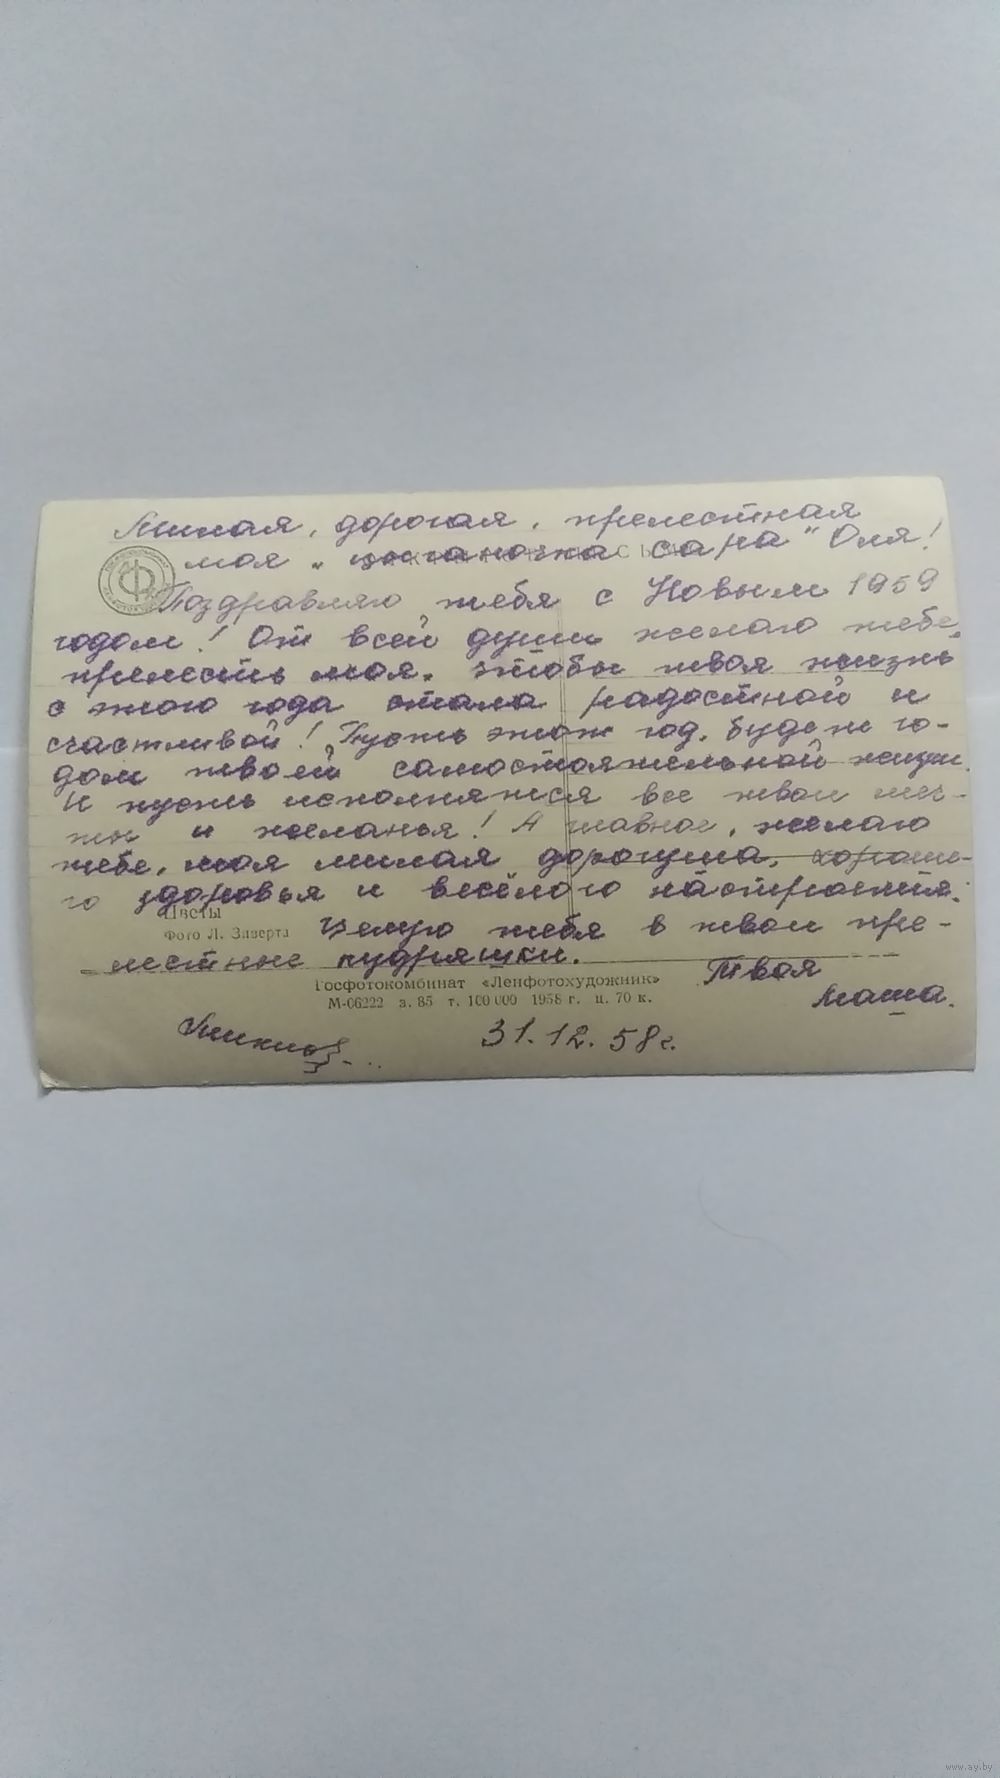 Милая, дорогая, прелестная
моя „ сара" Оля!
Поздравляю тебя с Новым 1959
годом! От всей души желаю тебе,
прелесть моя, чтобы твоя жизнь
с этого года стала радостной и
счастливой! Пусть этот год, будет го-
дом твоей самостоятельной жизни.
И пусть исполнятся все твои меч-
ты и желанья! А главное, желаю
тебе, моя милая дорогуша, хороше-
го здоровья и весёлого настроения.
Цветы
Фото Л. Зиверта
Целую тебя в твои пре-
лестные кудряшки.
Твоя
Маша.
Госфотокомбинат «Ленфотохудожник»
М-06222 з. 85 т. 100 000 1958 г. ц. 70 к.
31.12.58г.
www.ay.by